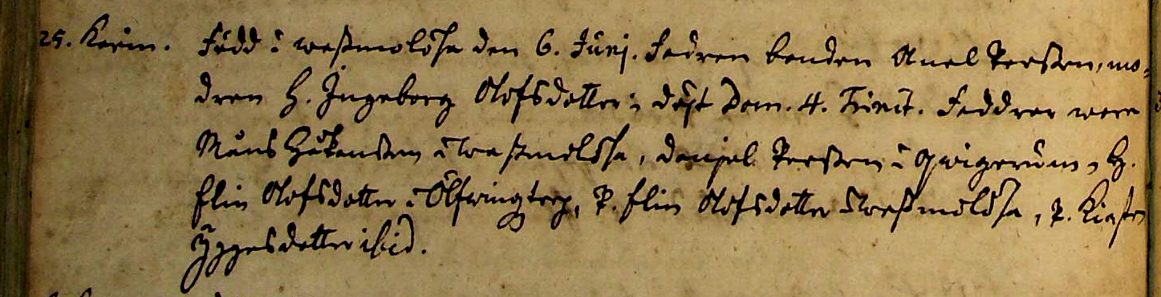 25. Karin. Född i wästmolösa den 6. Junj. Fadren bonden Axel Persson, mo-
dren H. Ingeborg Olofsdotter; döpt Dom. 4. Trinit. Faddrar wore
Måns Håkansson i wästmolösa, Danjel Persson i Qwigerum, H.
Elin Olofsdotter i Ölfwingstorp, P. Elin Olofsdotter i wästmolösa, P. Kirstin
ibid.